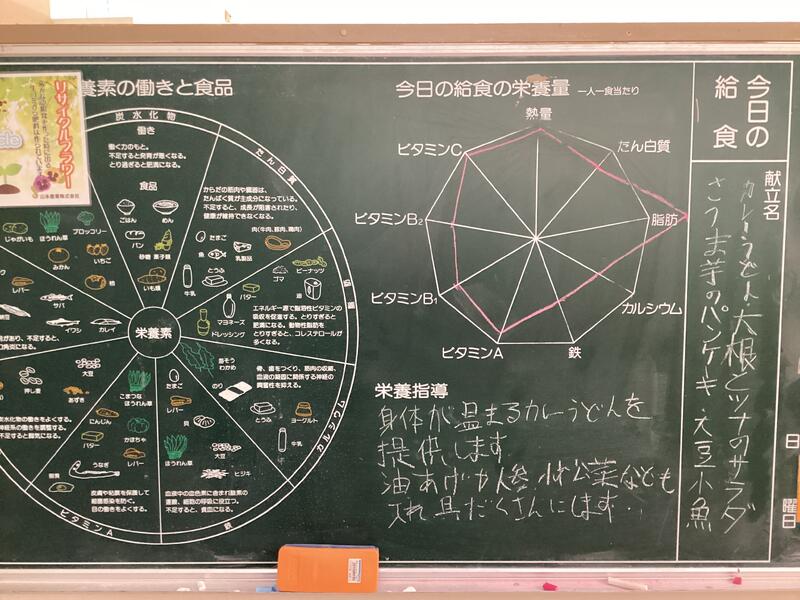 養素の働きと食品
リサイクルフラワー
炭水化物
働き
働く力のもと。
不足すると発育が悪くなる。
とり過ぎると肥満になる。
食品
ごはん
めん
パン
砂糖 菓子類
いも類
たん白質
からだの筋肉や臓器は、
たんぱく質が主成分になっている。
不足すると、成長が阻害されたり、
健康が維持できなくなる。
たまご
肉(牛肉、豚肉、鶏肉)
魚
乳製品
とうふ
牛乳
脂肪
ゴマ
ピーナッツ
バター
油
マヨネーズ
ドレッシング
エネルギー源で脂溶性ビタミンの
吸収を促進する。とりすぎると
肥満になる。動物性脂肪を
とりすぎると、コレステロールが
多くなる。
カルシウム
骨、歯をつくり、筋肉の収縮、
血液の凝固に関係する神経の
興奮性を抑える。
海そう
わかめ
のり
とうふ
ヨーグルト
牛乳
鉄
たまご
レバー
貝
大豆
ほうれん草
ヒジキ
血液中の血色素に含まれ酸素の
運搬、細胞の呼吸に役立つ。
不足すると、貧血になる。
ビタミンA
こまつな
ほうれん草
にんじん
かぼちゃ
バター
レバー
うなぎ
皮膚や粘膜を保護して
細菌感染を防ぐ。
目の働きをよくする。
大豆
押し麦
あずき
炭水化物の働きをよくする。
神経系の働きを調整する。
不足すると脚気になる。
レバー
サバ
イワシ
カレイ
じゃがいも
ほうれん草
ブロッコリー
みかん
いちご
柿
栄養素
今日の給食の栄養量 一人一食当たり
熱量
たん白質
脂肪
カルシウム
鉄
ビタミンA
ビタミンB1
ビタミンB2
ビタミンC
栄養指導
身体が温まるカレーうどんを
提供します
油あげや人参、小松菜なども
入れ具だくさんにします‥
今日の
給食
献立名
カレーうどん、大根とツナのサラダ
さつま芋のパンケーキ・大豆小魚
日
曜日